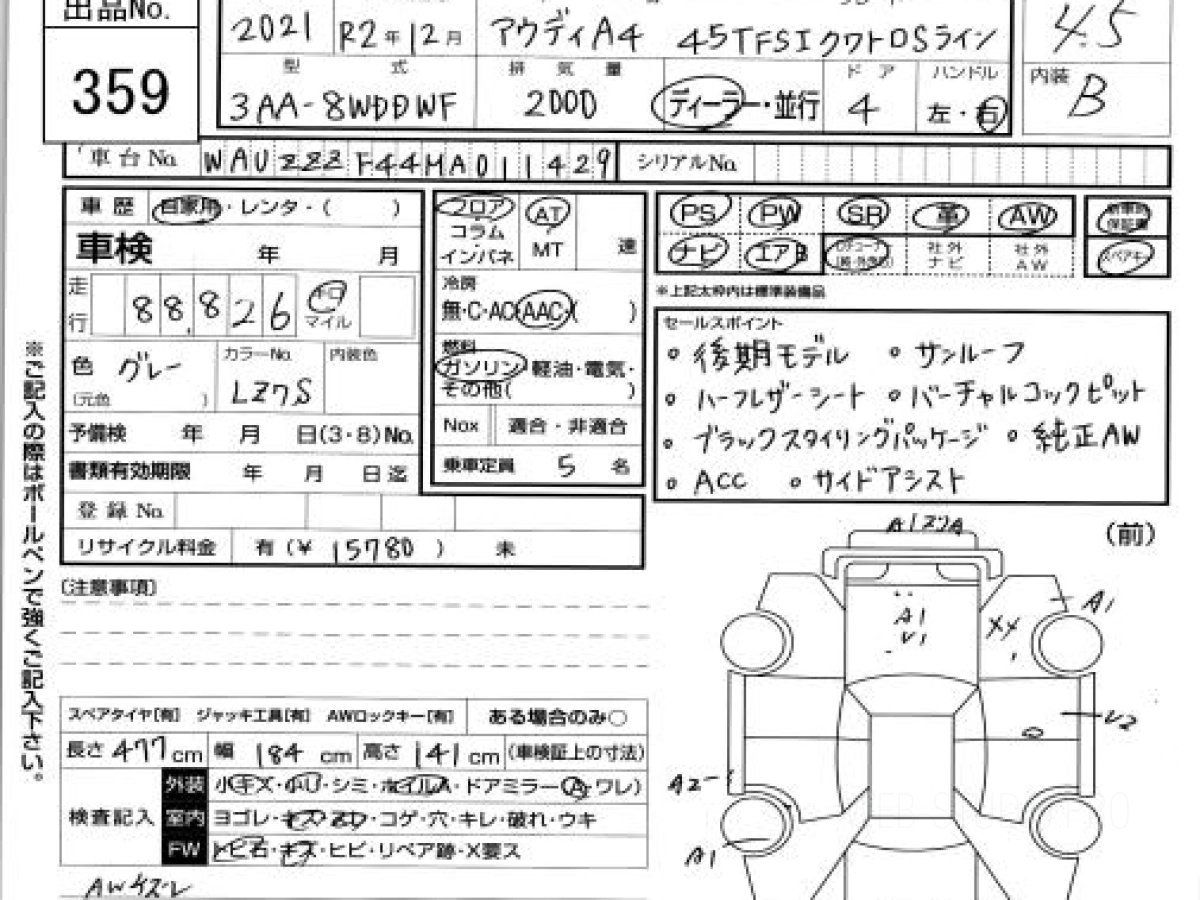 出品No.
359
2021 R2年12月 アウディA4 45TFSIクワトロSライン
4.5
型式 排気量 ドア ハンドル
3AA-8WDDWF 2000 ディーラー・並行 4 左・右
内装 B
車台No. WAUZZZF44MA011429 シリアルNo.
車歴 自家用・レンタ・( )
車検 年 月
走行 88,826 キロ マイル
色 グレー カラーNo. LZ7S 内装色
(元色 )
予備検 年 月 日(3・8)No.
書類有効期限 年 月 日迄
登録No.
リサイクル料金 有(¥ 15780 ) 未
フロア AT
コラム
インパネ MT 速
冷房
無・C・AC・AAC・( )
燃料
ガソリン・軽油・電気・
その他( )
Nox 適合・非適合
乗車定員 5 名
PS PW SR 革 AW
ナビ エアB 社外ナビ 社外AW
保証書
スペアキー
※上記太枠内は標準装備品
セールスポイント
◦ 後期モデル ◦ サンルーフ
◦ ハーフレザーシート ◦ バーチャルコックピット
◦ ブラックスタイリングパッケージ ◦ 純正AW
◦ ACC ◦ サイドアシスト
※ご記入の際はボールペンで強くご記入下さい。
(注意事項)
(前)
A1
A1
V1
XX
A1
V2
A2
A1
スペアタイヤ[有] ジャッキ工具[有] AWロックキー[有] ある場合のみ○
長さ 477cm 幅 184cm 高さ 141cm (車検証上の寸法)
検査記入
外装 小キズ・小U・シミ・ホイルA・ドアミラー(A・ワレ)
室内 ヨゴレ・キズ・コゲ・穴・キレ・破れ・ウキ
FW トビ石・キズ・ヒビ・リペア跡・X要ス
AWキズレ